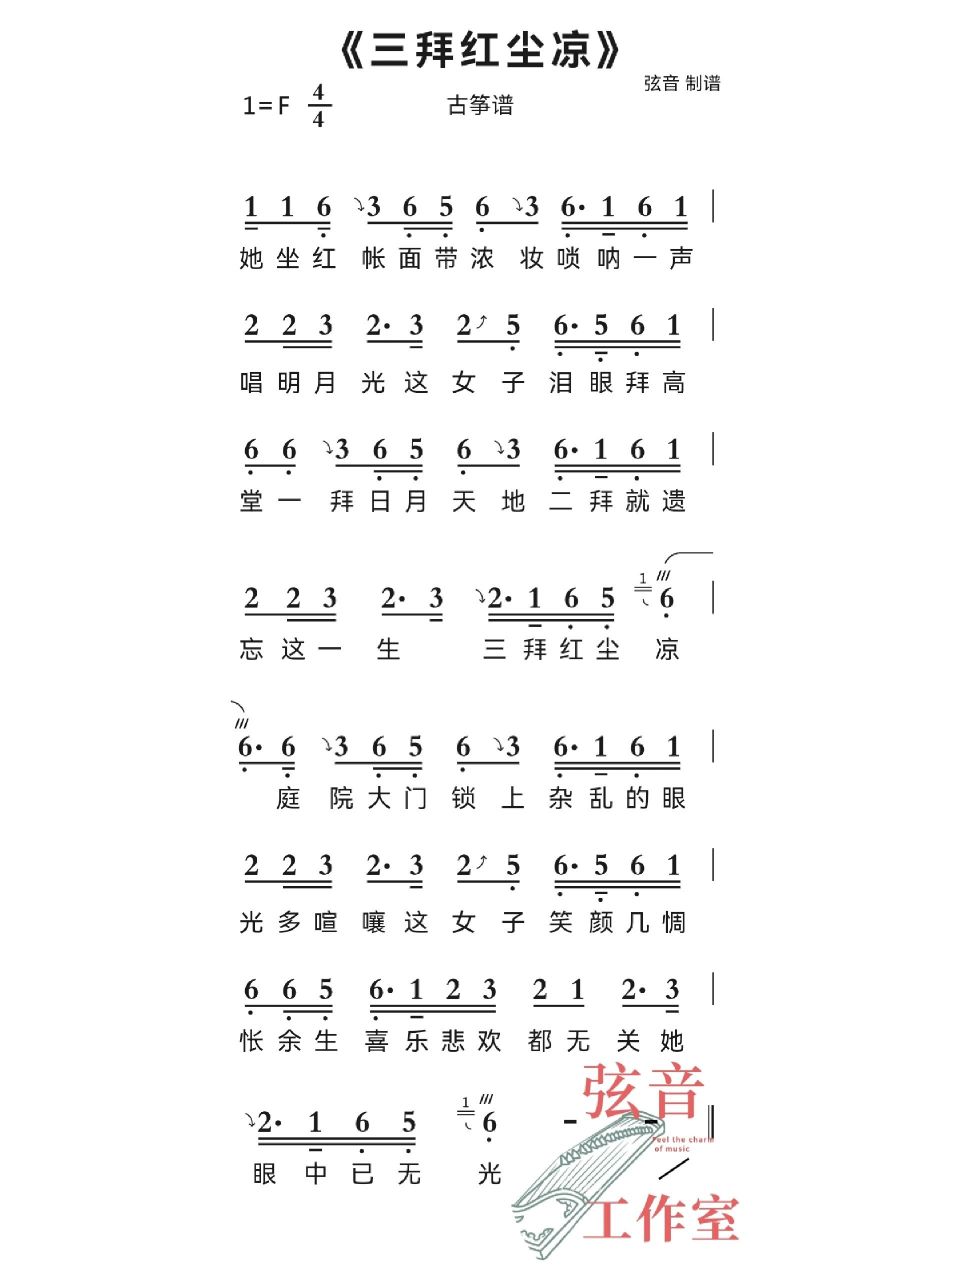 《三拜红尘凉》
弦音 制谱
1=F 4/4 古筝谱
1 1 6 3 6 5 6 3 6· 1 6 1
她 坐 红 帐 面 带 浓 妆 唢 呐 一 声
2 2 3 2· 3 2 5 6· 5 6 1
唱 明 月 光 这 女 子 泪 眼 拜 高
6 6 3 6 5 6 3 6· 1 6 1
堂 一 拜 日 月 天 地 二 拜 就 遗
2 2 3 2· 3 2· 1 6 5 1 6
忘 这 一 生 三 拜 红 尘 凉
6· 6 3 6 5 6 3 6· 1 6 1
庭 院 大 门 锁 上 杂 乱 的 眼
2 2 3 2· 3 2 5 6· 5 6 1
光 多 喧 嚷 这 女 子 笑 颜 几 惆
6 6 5 6· 1 2 3 2 1 2· 3
怅 余 生 喜 乐 悲 欢 都 无 关 她
2· 1 6 5 1 6 - -
眼 中 已 无 光
弦音
Feel the charm
of music
工作室